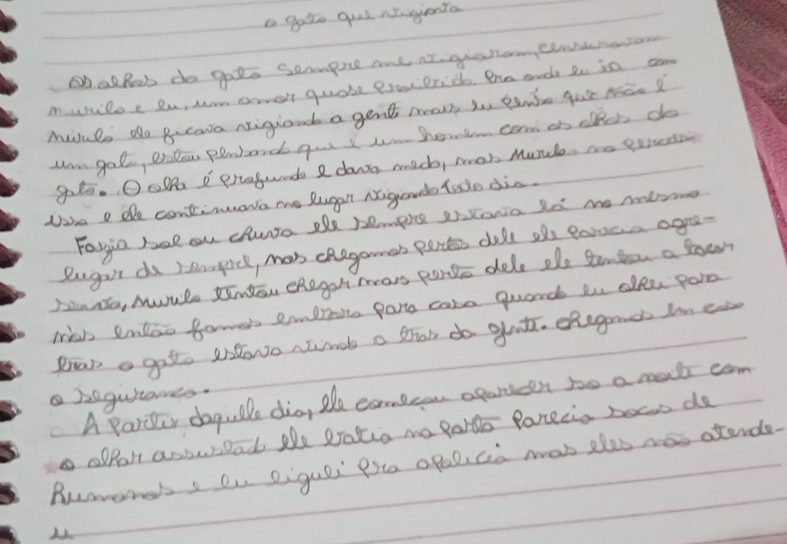 o gato que vigiava
Os olhos do gato sempre me vigiaram,
murilo e eu, um amor quase proibido. Era onde eu ia com
murilo ele ficava vigiando a gente mas, eu sinto que não é
um gato, estou pensando que é um homem com os olhos do
gato. O olho é profundo e dava medo, mas Murilo não percebia
isso e ele continuava no lugar vigiando todo dia.
Fazia sol ou chuva ele sempre estava lá no mesmo
lugar de sempre, mas chegamos perto dele ele parecia agre-
Murilo tentou chegar mais perto dele ele tentou a
mas então fomos embora para casa quando eu olhei para
tras o gato estava vindo a tras da gente. chegamos em casa
o segurança.
A partir daquele dia, ele começou aparecer so a noite com
o olhar assustado ele batia na porta parecia socos de
Rumanos e eu liguei pra apolicia mas eles não atende-
u